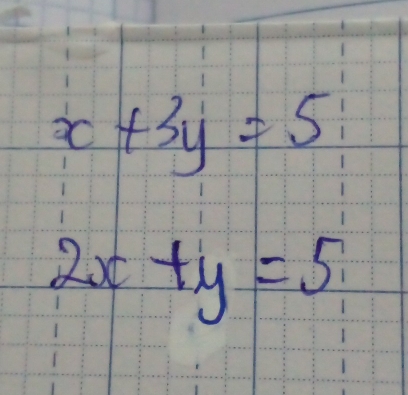 x + 3y = 5
2x + y = 5